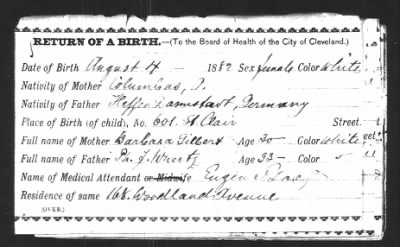 RETURN OF A BIRTH.—(To the Board of Health of the City of Cleveland.)
Date of Birth August 4 - 1882 Sex female Color White
Nativity of Mother Columbus, O.
Nativity of Father Darmstadt, Germany
Place of Birth (of child), No. 601 St Clair Street.
Full name of Mother Barbara Gilbert Age 30 - Color White
Full name of Father Ph. J. Age 33 - Color
Name of Medical Attendant or Midwife Eugen
Residence of same 168 Woodland Avenue
(OVER.)